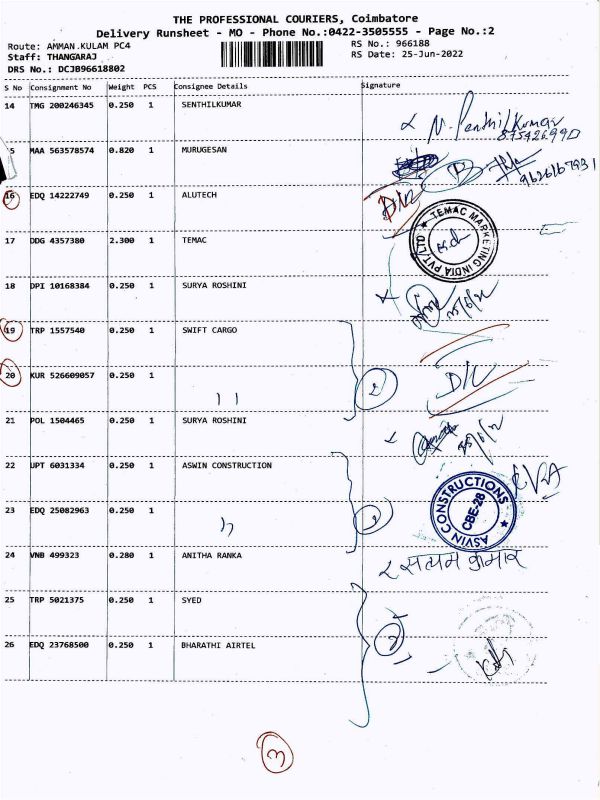 THE PROFESSIONAL COURIERS, Coimbatore
Delivery Runsheet - MO - Phone No.:0422-3505555 - Page No.:2
Route: AMMAN.KULAM PC4 RS No.: 966188
Staff: THANGARAJ RS Date: 25-Jun-2022
DRS No.: DCJB96618802
S No Consignment No Weight PCS Consignee Details Signature
14 TMG 200246345 0.250 1 SENTHILKUMAR
N. Senthil Kumar
875426990
5 MAA 563578574 0.820 1 MURUGESAN
9626167931
16 EDQ 14222749 0.250 1 ALUTECH
D/L
17 DDG 4357380 2.300 1 TEMAC
TEMAC MARKETING INDIA PVT. LTD
18 DPI 10168384 0.250 1 SURYA ROSHINI
25/6/22
19 TRP 1557540 0.250 1 SWIFT CARGO
20 KUR 526609057 0.250 1 11
2
D/L
21 POL 1504465 0.250 1 SURYA ROSHINI
25/6/22
22 UPT 6031334 0.250 1 ASWIN CONSTRUCTION
ASVIN CONSTRUCTIONS
CBE-28
23 EDQ 25082963 0.250 1
24 VNB 499323 0.280 1 ANITHA RANKA
सत्यम कुमार
25 TRP 5021375 0.250 1 SYED
26 EDQ 23768500 0.250 1 BHARATHI AIRTEL
3